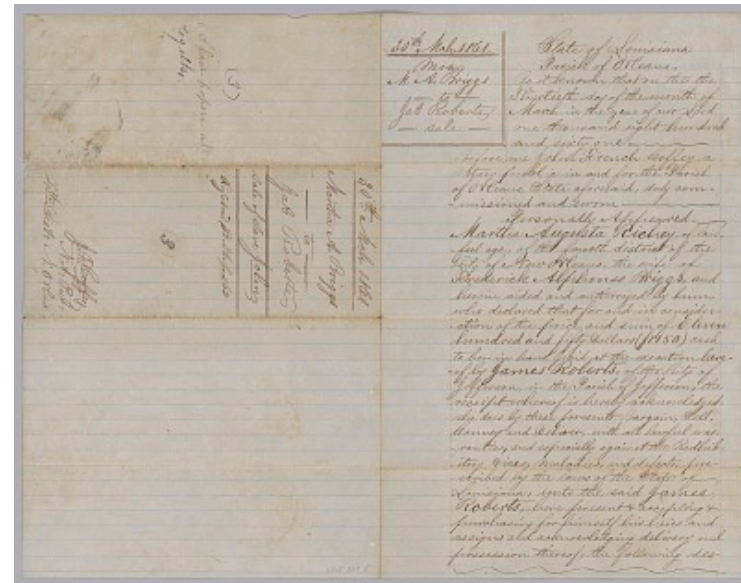 30th Mch. 1861
M. A. Briggs
to
Jas Roberts
sale
State of Louisiana
Parish of Orleans
be it known that on this the
Thirtieth day of the month of
March in the year of our Lord
one thousand eight hundred
and sixty one
before me John French Coffey a
Notary Public in and for the Parish
of Orleans State aforesaid, duly com-
missioned and sworn
Personally Appeared
Martha Augusta Richey of law-
ful age, of the fourth district of the
City of New Orleans, the wife of
Frederick Alphonso Briggs, and
herein aided and authorized by him
who declared that for and in consider-
ation of the price and sum of Eleven
hundred and fifty dollars ($1150) cash
to her in hand paid, at the execution here-
of by James Roberts, of the City of
Jefferson, in the Parish of Jefferson, the
receipt whereof is hereby acknowledged
she does by these presents, bargain, sell,
convey and deliver, with all lawful war-
ranties, and especially against the Redhibi-
tory Vices, maladies, and defects pre-
scribed by the laws of the State of
Louisiana, unto the said James
Roberts, here present & accepting &
purchasing for himself his heirs and
assigns and acknowledging delivery and
possession thereof, the following des-
(3)
together
30th Mch. 1861
Martha A. Briggs
to
Jas Roberts
Sale of slave
3